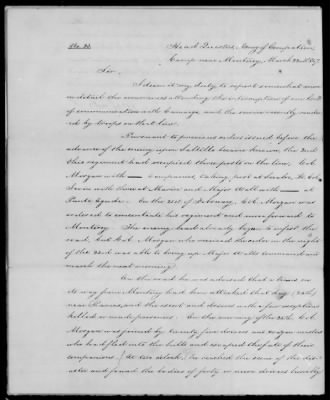 No. 23.
Head Quarters, Army of Occupation,
Camp near Monterey, March 22nd 1847
Sir.
I deem it my duty to report somewhat more
in detail the occurrences attending the interruption of our line
of communication with Camargo, and the service recently rendered
by troops on that line.
Pursuant to previous orders issued before the
advance of the enemy upon Saltillo became known, the 2nd
Ohio regiment had occupied three posts on the line, Col.
Morgan with — Companies, taking post at
with them at Marin and Major Wall with — at
Punta Aguda. On the 21st of February Col. Morgan was
ordered to concentrate his regiment and move forward to
Monterey. The enemy had already began to infest the
road, but Col. Morgan who received the order in the night
of the 22nd was able to bring up Major Wall's command and
march the next morning.
On the road he was advised that a train on
its way from Monterey had been attacked that day (24th)
near Ramos, and the escort and drivers with a few exceptions
killed or made prisoners. On the morning of the 25th Col.
Morgan was joined by twenty five drivers and wagon masters
who had fled into the hills and escaped the fate of their
companions. At two o'clock he reached the scene of the disaster
and found the bodies of forty or more drivers